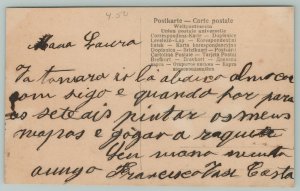 4.50
Postkarte — Carte postale
Weltpostverein
Union postale universelle
Correspondenz-Karte — Dopisnice
Levelező-Lap — Korespondenční
lístek — Karta korespondencyjna
Dopisnica — Briefkaart — Postkort
Cartolina Postale — Tarjeta Postal
Brefkort — Brevkort
Laura
Ja tomara ir lá abaixo almoçar
com sigo e quando for para
as sete ais pintar os meus
mapas e jogar a raquete
Seu mano muito
amigo Francisco José Costa